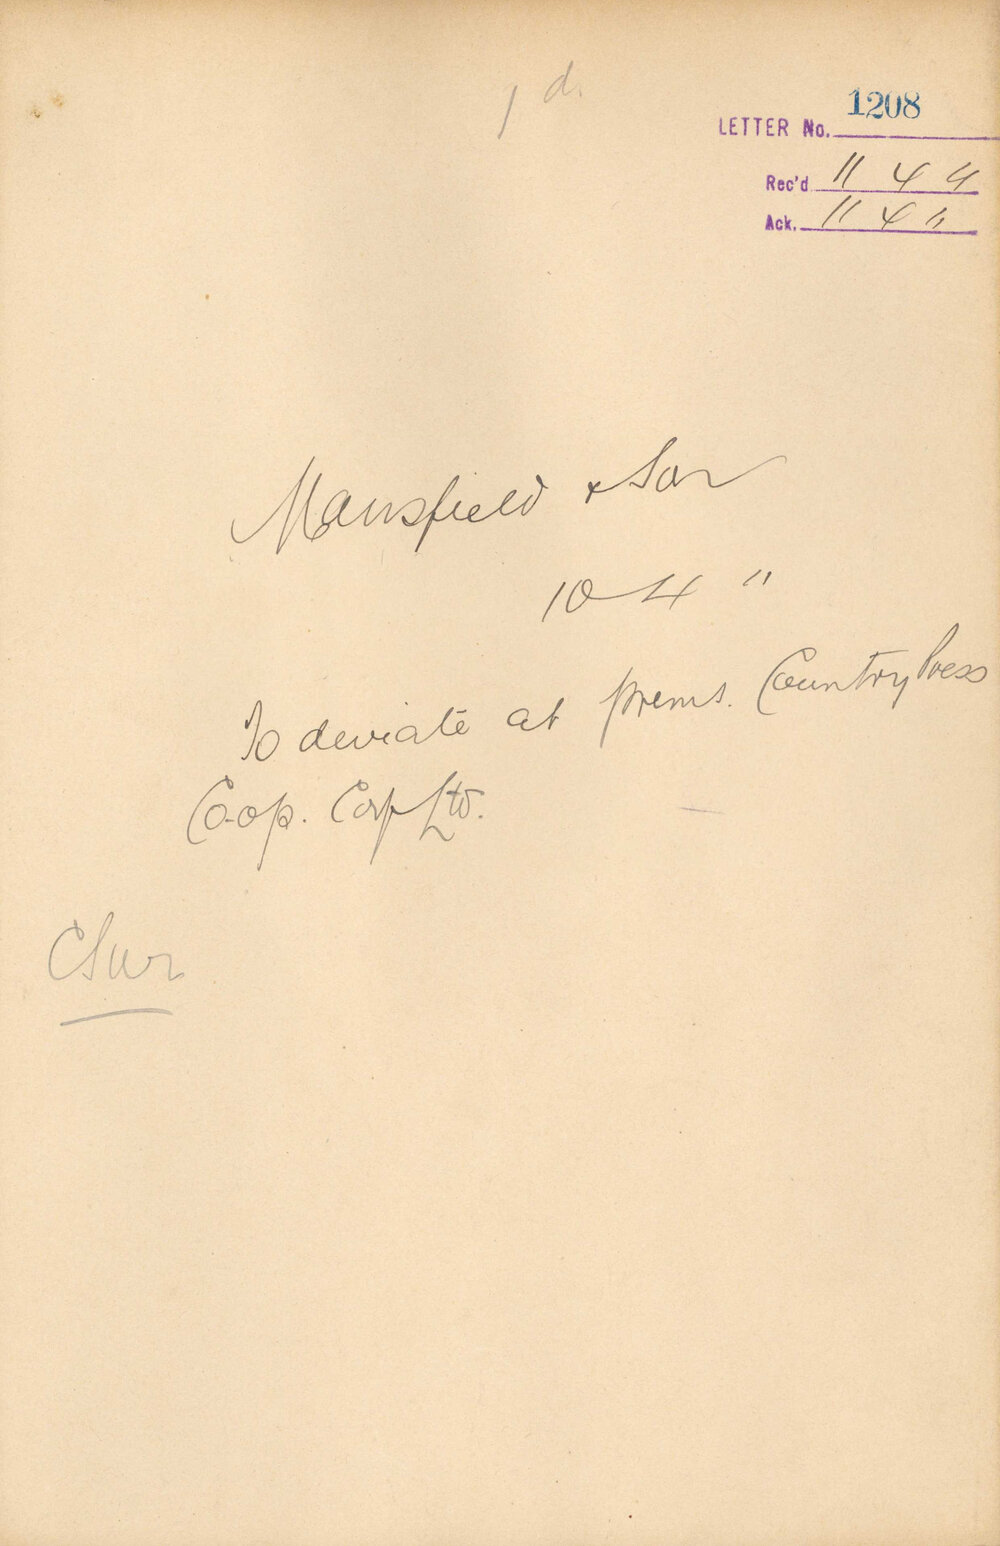 1 d.
1208
LETTER No.
Rec'd 11 4 11
Ack. 11 4 "
Mansfield & Son
10 4 "
To deviate at prems. Country Press
Co-op. Corp Ltd.
CSur